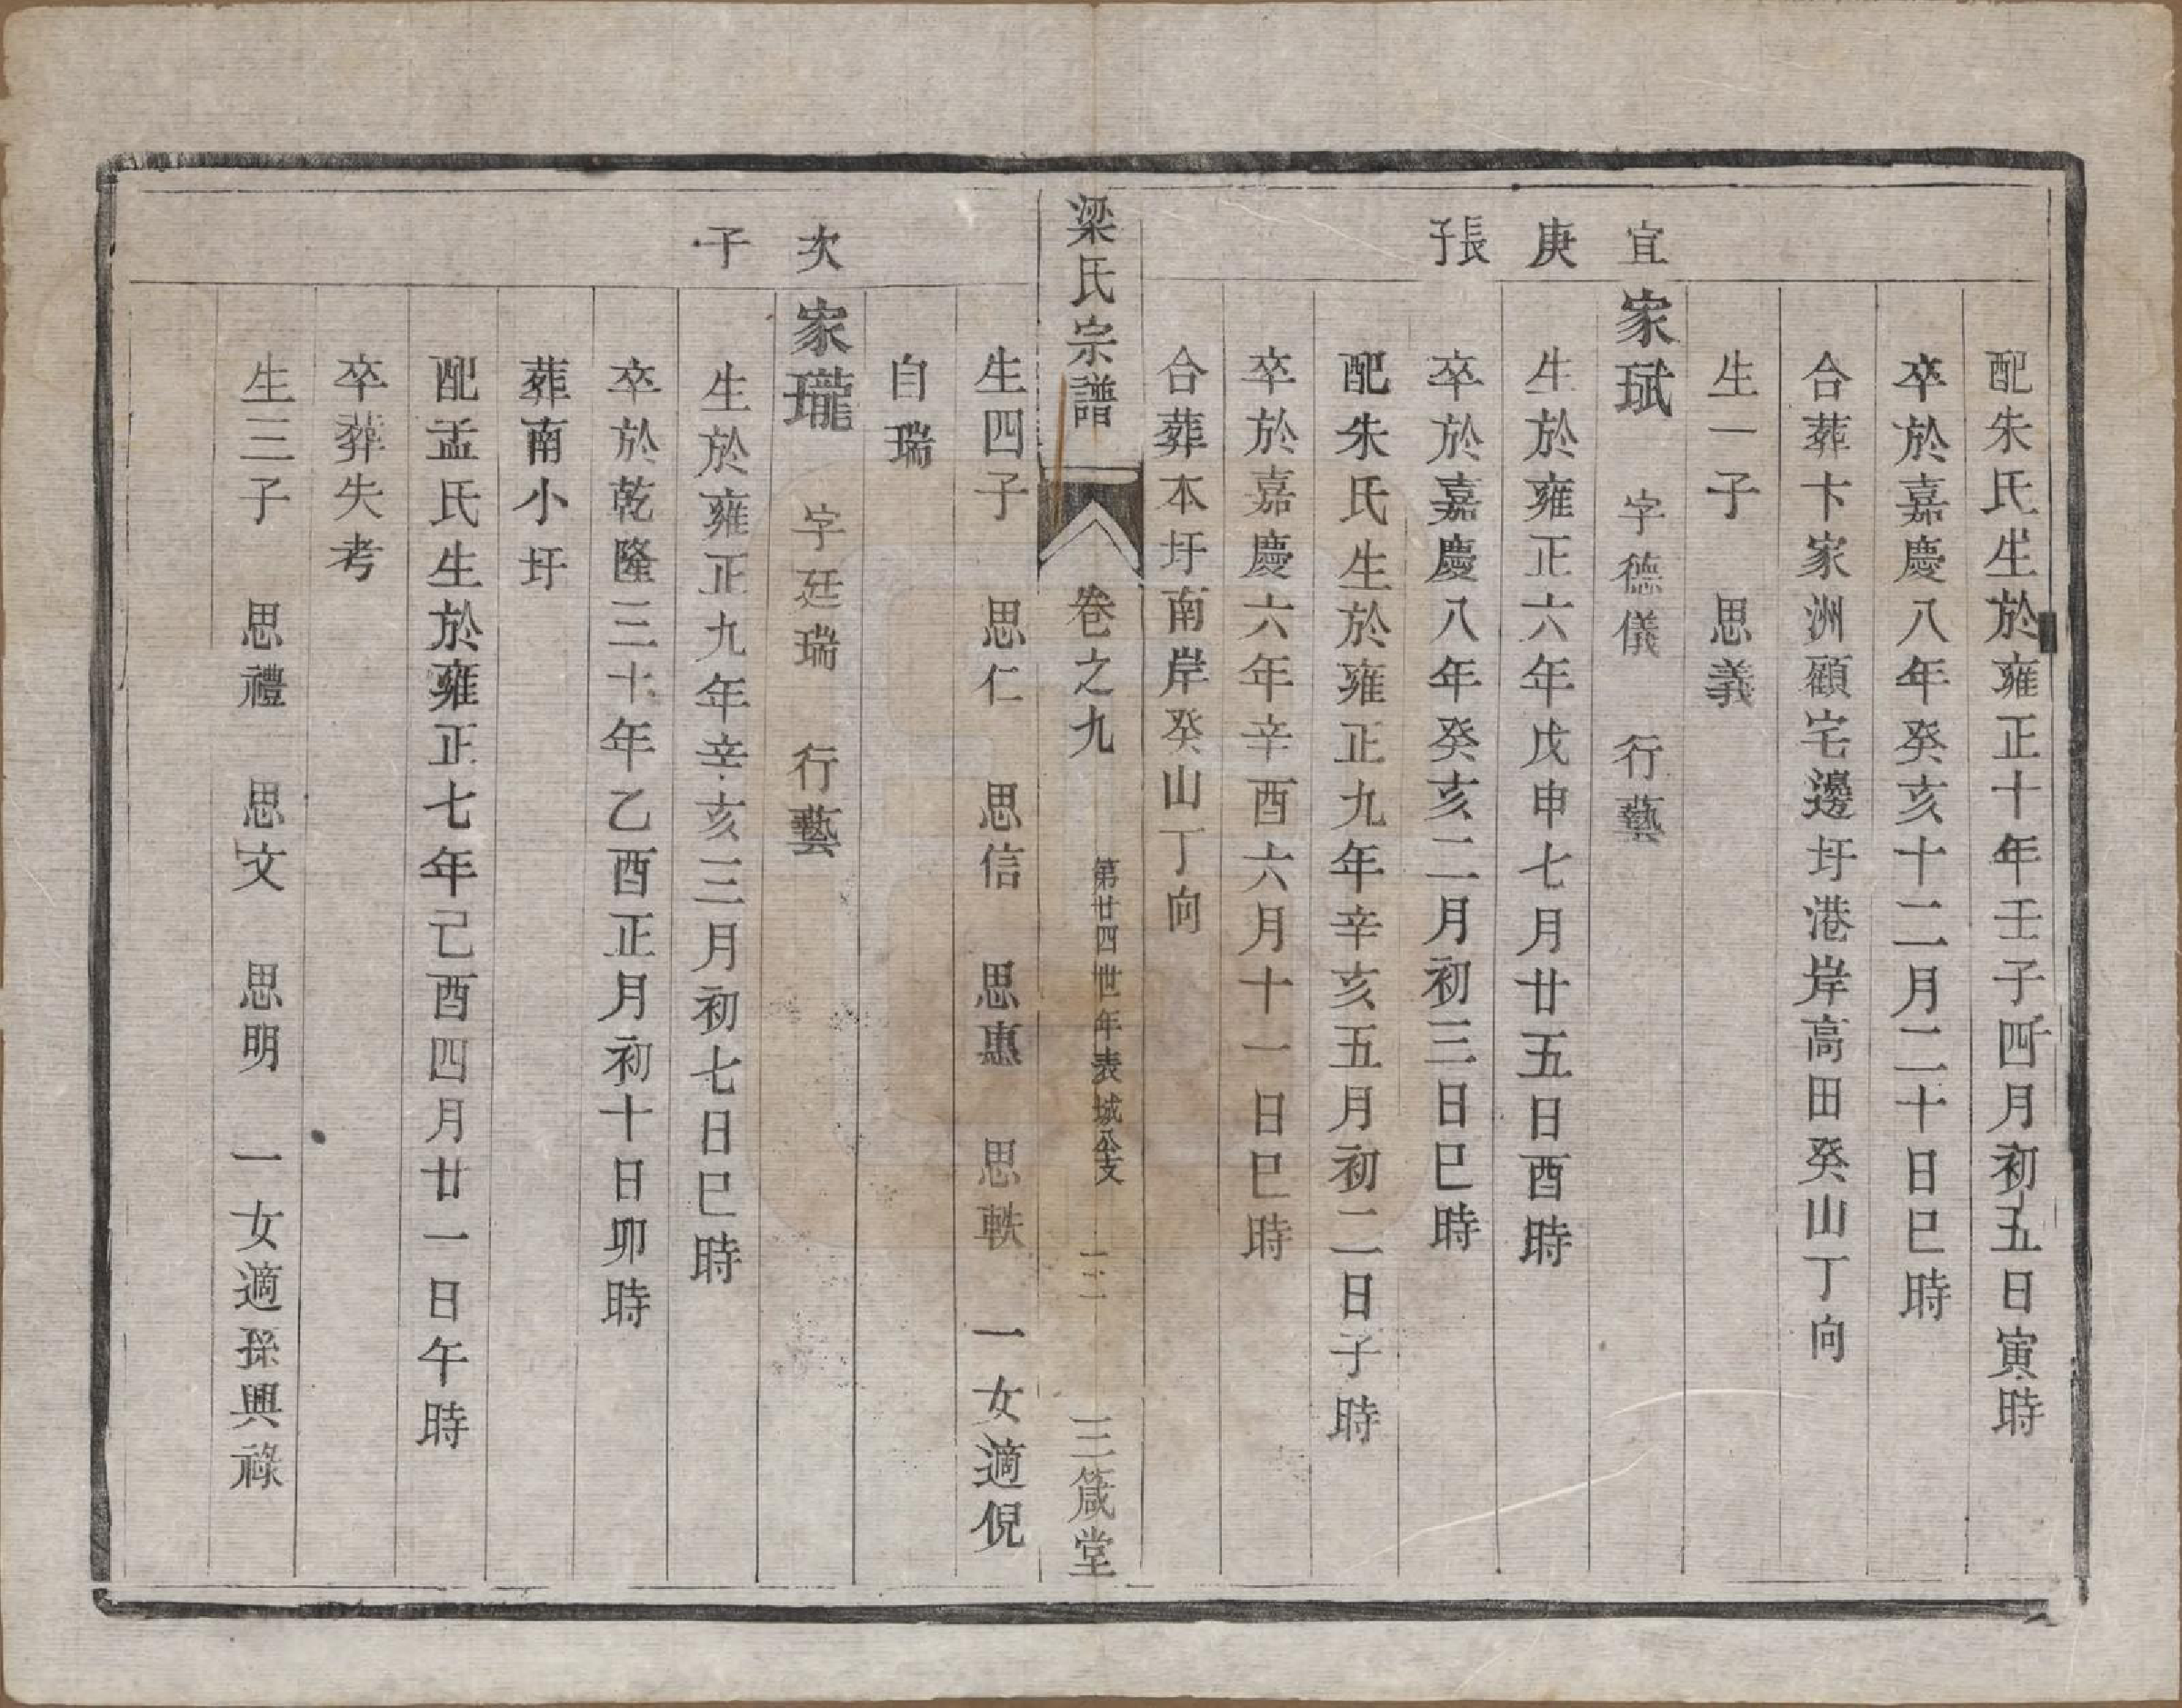 配朱氏生於雍正十年壬子四月初五日寅時
卒於嘉慶八年癸亥十二月二十日巳時
合葬卞家洲顧宅邊圩港岸高田癸山丁向
生一子　思義
宜庚張子
家珷　字德儀　行藝
生於雍正六年戊申七月廿五日酉時
卒於嘉慶八年癸亥二月初三日巳時
配朱氏生於雍正九年辛亥五月初二日子時
卒於嘉慶六年辛酉六月十一日巳時
合葬本圩南岸癸山丁向
梁氏宗譜　卷之九　第廿四世年表　城公支　十二　三箴堂
生四子　思仁　思信　思惠　思軼　一女適倪
自瑞
次子
家瓏　字廷瑞　行藝
生於雍正九年辛亥三月初七日巳時
卒於乾隆三十年乙酉正月初十日卯時
葬南小圩
配孟氏生於雍正七年己酉四月廿一日午時
卒葬失考
生三子　思禮　思文　思明　一女適孫興祿